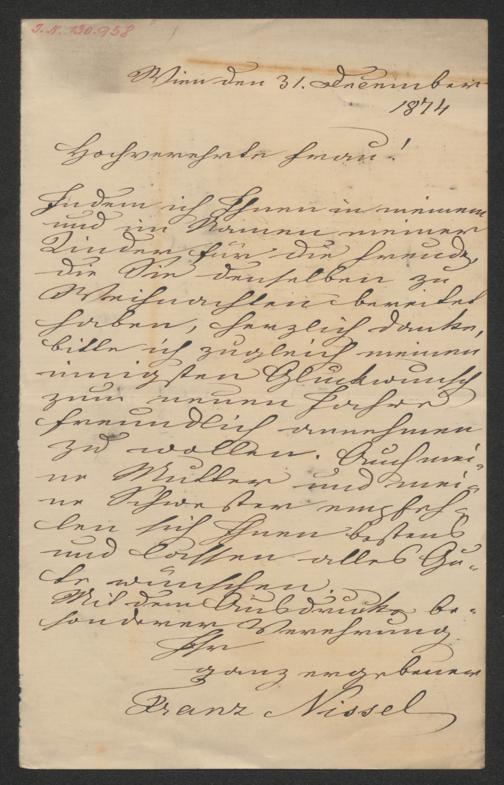 I.N. 130.958
Wien den 31. December
1874
Hochverehrte Frau!
Indem ich Ihnen in meinem
und im Namen meiner
Kinder für die Freude,
die Sie denselben zu
Weihnachten bereitet
haben, herzlich danke,
bitte ich zugleich meinen
innigsten Glückwunsch
zum neuen Jahre
freundlich annehmen
zu wollen. Auch mei-
ne Mutter und mei-
ne Schwester empfeh-
len sich Ihnen bestens
und lassen alles Gu-
te wünschen.
Mit dem Ausdrucke be-
sonderer Verehrung
Ihr
ganz ergebener
Franz Nissel